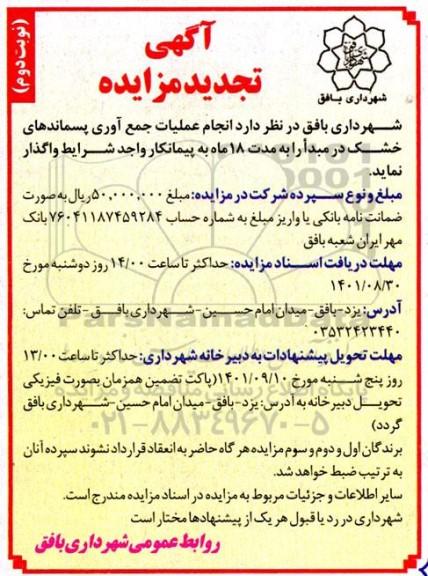 (نوبت دوم)
آگهی
تجدید مزایده
شهرداری بافق
شهرداری بافق در نظر دارد انجام عملیات جمع آوری پسماندهای
خشک در مبدأ را به مدت ۱۸ ماه به پیمانکار واجد شرایط واگذار
نماید.
مبلغ و نوع سپرده شرکت در مزایده: مبلغ ۵۰,۰۰۰,۰۰۰ ریال به صورت
ضمانت نامه بانکی یا واریز مبلغ به شماره حساب ۷۶۰۴۱۱۸۷۴۵۹۲۸۴ بانک
مهر ایران شعبه بافق
مهلت دریافت اسناد مزایده: حداکثر تا ساعت ۱۴/۰۰ روز دوشنبه مورخ
۱۴۰۱/۰۸/۳۰
آدرس: یزد-بافق-میدان امام حسین-شهرداری بافق-تلفن تماس:
۰۳۵۳۲۴۲۳۴۴۰
مهلت تحویل پیشنهادات به دبیر خانه شهرداری: حداکثر تا ساعت ۱۳/۰۰
روز پنج شنبه مورخ ۱۴۰۱/۰۹/۱۰ (پاکت تضمین همزمان بصورت فیزیکی
تحویل دبیر خانه به آدرس: یزد-بافق-میدان امام حسین-شهرداری بافق
گردد)
برندگان اول و دوم و سوم مزایده هر گاه حاضر به انعقاد قرار داد نشوند سپرده آنان
به ترتیب ضبط خواهد شد.
سایر اطلاعات و جزئیات مربوط به مزایده در اسناد مزایده مندرج است.
شهرداری در رد یا قبول هر یک از پیشنهادها مختار است
روابط عمومی شهرداری بافق
ParsNamadData
۰۲۱-۸۸۳۴۹۶۷۰-۵